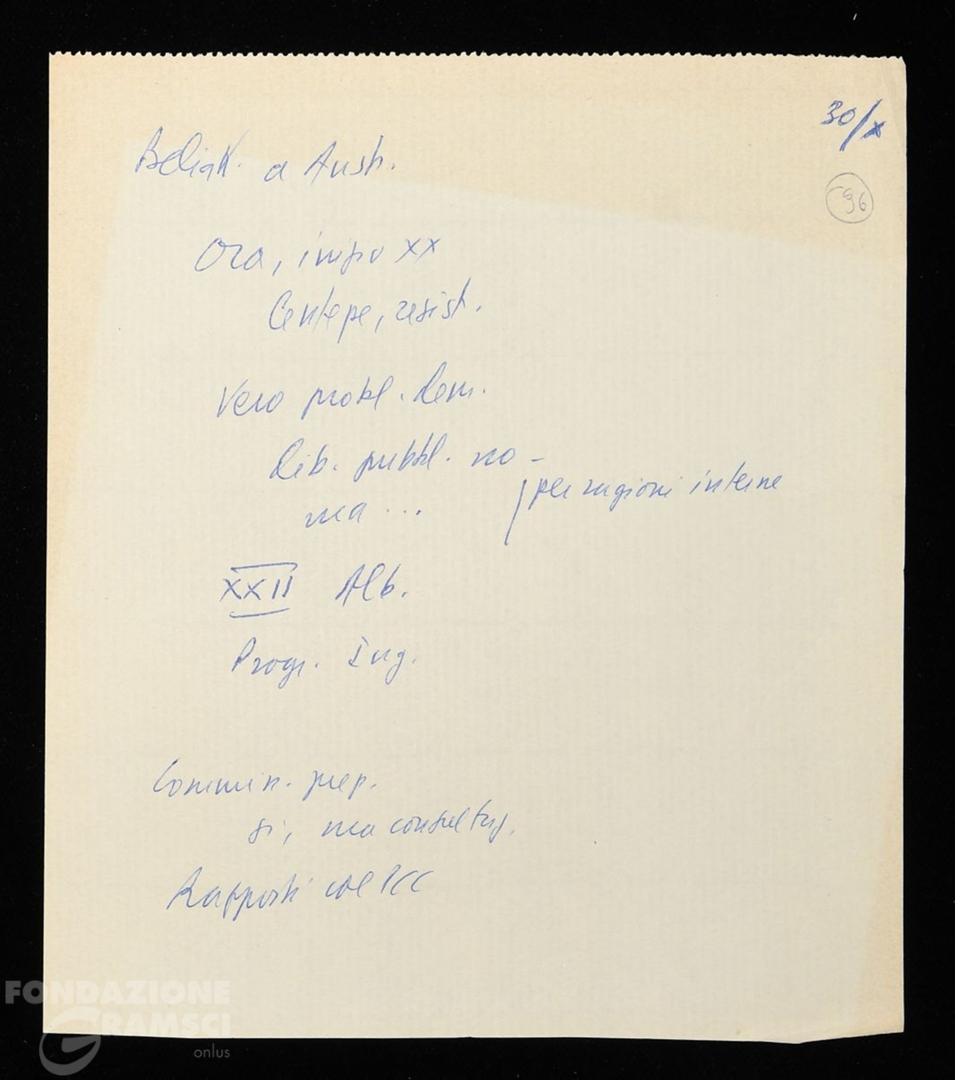 30/x
96
Beliak. a Aust.
Ora, inizio XX
Centepe, resist.
Vero probl. dem.
Lib. pubbl. no -
ma ...
per ragioni interne
XXII Alb.
Progr. Jug.
Commiss. prep.
si, ma consultaz.
Rapporti col PCC
FONDAZIONE
GRAMSCI
onlus